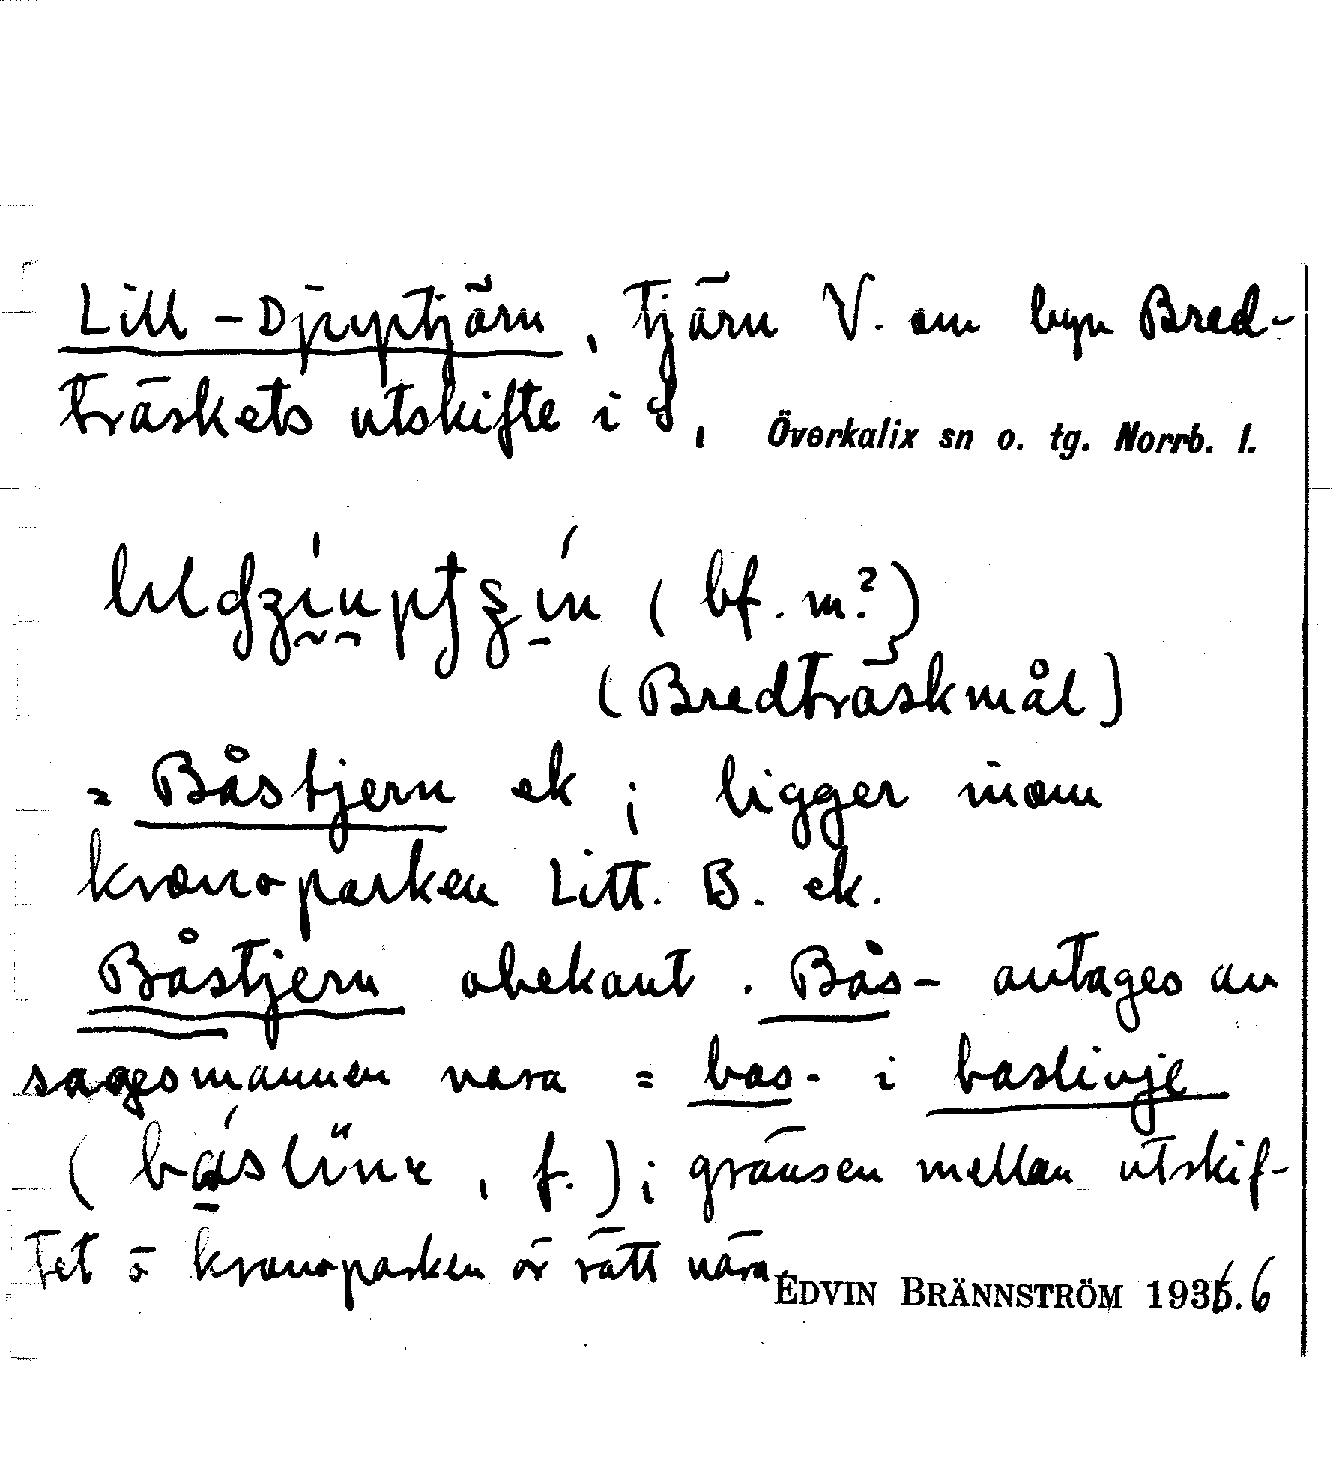 Lill-Djuptjärn, tjärn V. om byn Bred-
träskets utskifte i S, Överkalix sn o. tg. Norrb. l.
(bf. m.?)
(Bredträskmål)
= Båstjern ek; ligger inom
kronoparken Litt. B. ek.
Båstjern obekant. Bås- antages av
sagesmannen vara = bas- i baslinje
f.); gränsen mellan utskif-
tet o kronoparken är rätt nära.
EDVIN BRÄNNSTRÖM 1936